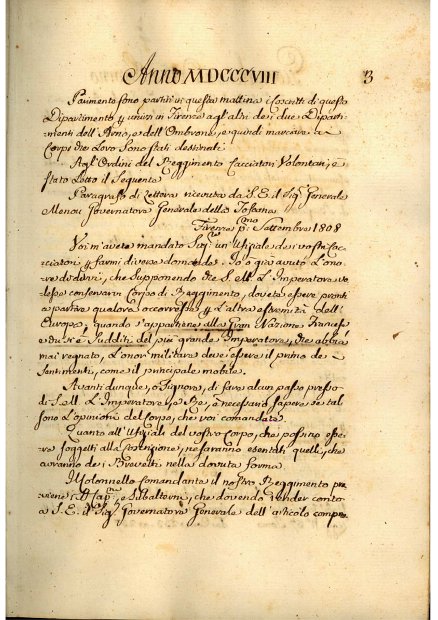 Anno MDCCCVIII 3
Parimente sono partiti in questa mattina i Coscritti di questo
Dipartimento p unirsi in Firenze agl'altri dei due Diparti-
menti dell'Arno, e dell'Ombrone, e quindi marciare ai
Corpi che Loro sono stati destinati.
Agl'Ordini del Reggimento Cacciatori Volontari è
stato Letto il Seguente
Paragrafo di Lettera ricevuta da S. E. il Sig.e Generale
Menou Governatore Generale della Toscana
Firenze p.mo Settembre 1808
Voi m'avete mandato Sig.re un Ufiziale dei vostri Cac-
ciatori p farmi diverse domande. Io ò già avuto L'ono-
re di dirvi, che supponendo che S. M. L'Imperatore vo-
lesse conservarvi Corpo di Reggimento, dovete essere pronti
a partire qualora occorresse p L'altra estremità dell'
Europa; quando s'appartiene alla Gran Nazione Francese
e che si è Sudditi del più grande Imperatore, che abbia
mai regnato, L'onor militare deve essere il primo dei
Sentimenti, come il principale mobile.
Avanti dunque, o Signore, di fare alcun passo presso
di S. M. L'Imperatore, e Re, è necessario sapere se tal
sono L'opinioni del Corpo, che voi comandate.
Quanto all'Ufiziali del vostro Corpo, che possino esse-
re soggetti alla Coscrizione, ne saranno esentati quelli, che
avranno dei Brevetti nella dovuta forma.
Il Colonnello Comandante il nostro Reggimento pre-
viene i Cap.ni e Subalterni, che dovendo render conto
a S. E. il Sig.e Governatore Generale dell'articolo compre-